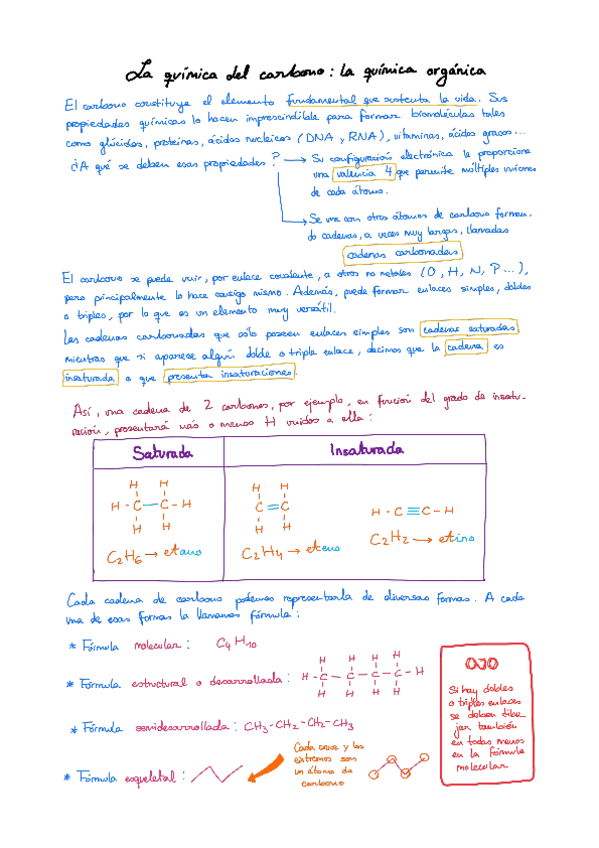 La química del carbono: la química orgánica
El carbono constituye el elemento fundamental que sustenta la vida. Sus
propiedades químicas lo hacen imprescindible para formar biomoléculas tales
como glúcidos, proteínas, ácidos nucleicos (DNA y RNA), vitaminas, ácidos grasos...
¿A qué se deben esas propiedades?
Su configuración electrónica le proporciona
una valencia 4 que permite múltiples uniones
de cada átomo.
Se une con otros átomos de carbono forman-
do cadenas, a veces muy largas, llamadas
cadenas carbonadas
El carbono se puede unir, por enlace covalente, a otros no metales (O, H, N, P...),
pero principalmente lo hace consigo mismo. Además, puede formar enlaces simples, dobles
o triples, por lo que es un elemento muy versátil.
Las cadenas carbonadas que sólo poseen enlaces simples son cadenas saturadas
mientras que si aparece algún doble o triple enlace, decimos que la cadena es
insaturada o que presenta insaturaciones.
Así, una cadena de 2 carbonos, por ejemplo, en función del grado de insatu-
ración, presentará más o menos H unidos a ella:
Saturada Insaturada
H H H H
H-C-C-H C=C H-C≡C-H
H H H H
C2H6 → etano C2H4 → eteno C2H2 → etino
Cada cadena de carbono podemos representarla de diversas formas. A cada
una de esas formas la llamamos fórmula:
* Fórmula molecular: C4H10
H H H H
* Fórmula estructural o desarrollada: H-C-C-C-C-H
H H H H
* Fórmula semidesarrollada: CH3-CH2-CH2-CH3
* Fórmula esqueletal:
Cada cruce y los
extremos son
un átomo de
carbono
OJO
Si hay dobles
o triples enlaces
se deben dibu-
jar también
en todas menos
en la fórmula
molecular